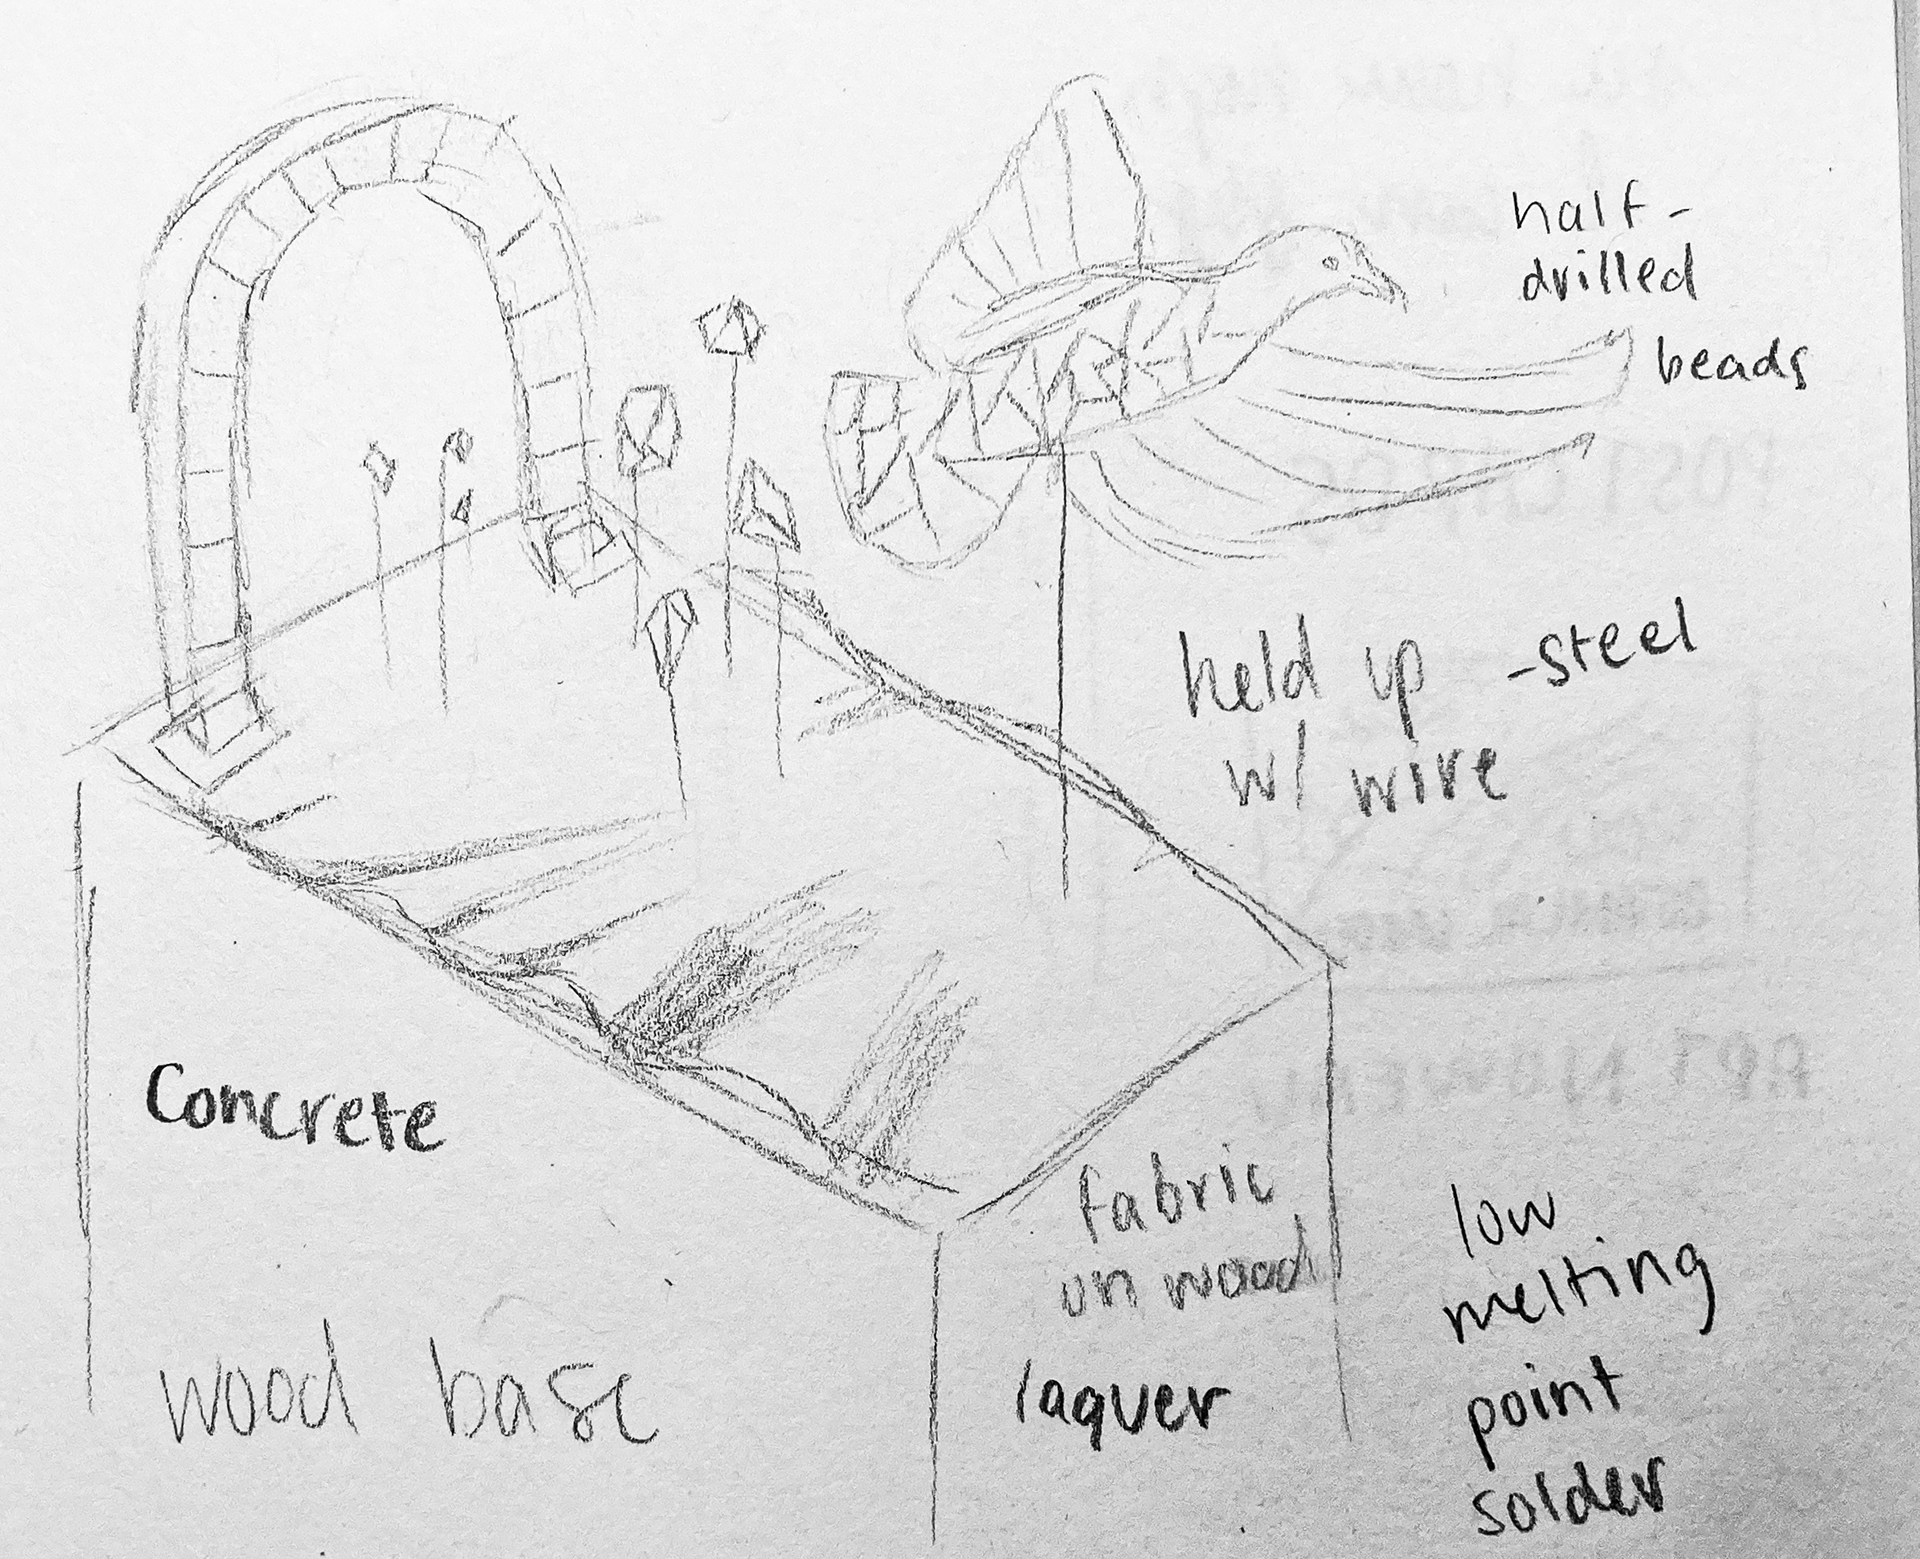 half-
drilled
beads
held up -steel
w/ wire
Concrete
wood base
fabric
on wood
laquer
low
melting
point
solder